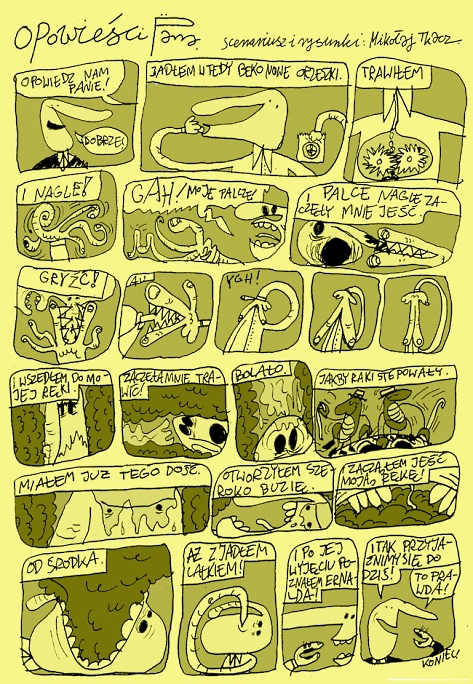 OPOWIEŚCI Pana
scenariusz i rysunki: Mikołaj Tkacz
OPOWIEDZ NAM
PANIE!
DOBRZE!
JADŁEM WTEDY BEKONOWE ORZESZKI.
TRAWIŁEM
I NAGLE!
GAH! MOJE PALCE!
I PALCE NAGLE ZA-
CZĘŁY MNIE JEŚĆ.
GRYŹĆ!
PGH!
I WSZEDŁEM DO MO-
JEJ RĘKI
ZACZĘŁA MNIE TRA-
WIĆ!
BOLAŁO.
JAKBY RAKI STEPOWAŁY.
MIAŁEM JUŻ TEGO DOŚĆ.
OTWORZYŁEM SZE-
ROKO BUZIĘ.
I ZACZĄŁEM JEŚĆ
MOJĄ RĘKĘ!
OD ŚRODKA.
AŻ ZJADŁEM
CAŁKIEM!
I PO JEJ
WYJĘCIU PO-
ZNAŁEM ERNA-
LDA!
I TAK PRZYJA-
ŹNIMY SIĘ DO
DZIŚ!
TO PRA-
WDA!
KONIEC!